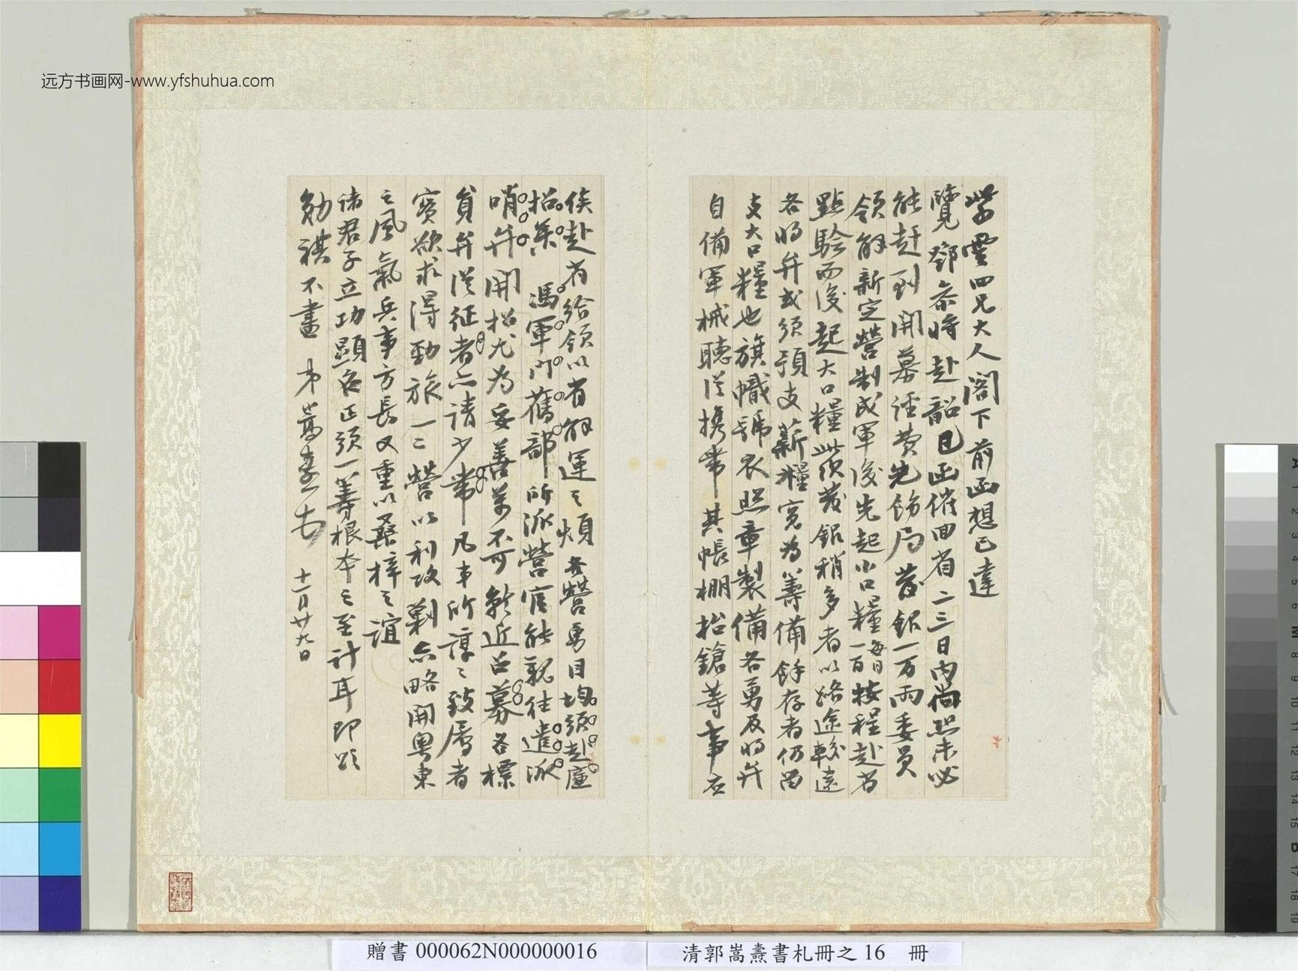 远方书画网-www.yfshuhua.com
紫雲四兄大人閣下前函想已達
覽鄧示將赴韶已函催回省二三日內尚恐未必
能赶到開募經費先飭局發銀一万兩委員
領解新定營制成軍後先起小口糧每日一百按程赴省
點驗而後起大口糧此次發銀稍多者以路途較遠
各將弁或須預支薪糧寬為籌備餘存者仍留
支大口糧也旗幟號衣照章製備各勇及將弁
自備軍械聽從攜帶其帳棚抬鎗等事應
俟赴省給領以省解運之煩各營勇目均須赴
招集 馮軍門舊部所派營官能親往遣派
哨弁開招尤為妥善萬不可就近召募各標
負弁從征者亦請少帶凡事所諄諄致屬者
實欲求得勁旅一二營以利攻剿亦略開粵東
之風氣兵事方長又重以桑梓之誼
諸君子立功顯名正須一籌根本之至計耳即頌
勛祺不盡 弟嵩燾頓首 十一月廿九日
贈書 000062N000000016
清郭嵩燾書札冊之 16 冊